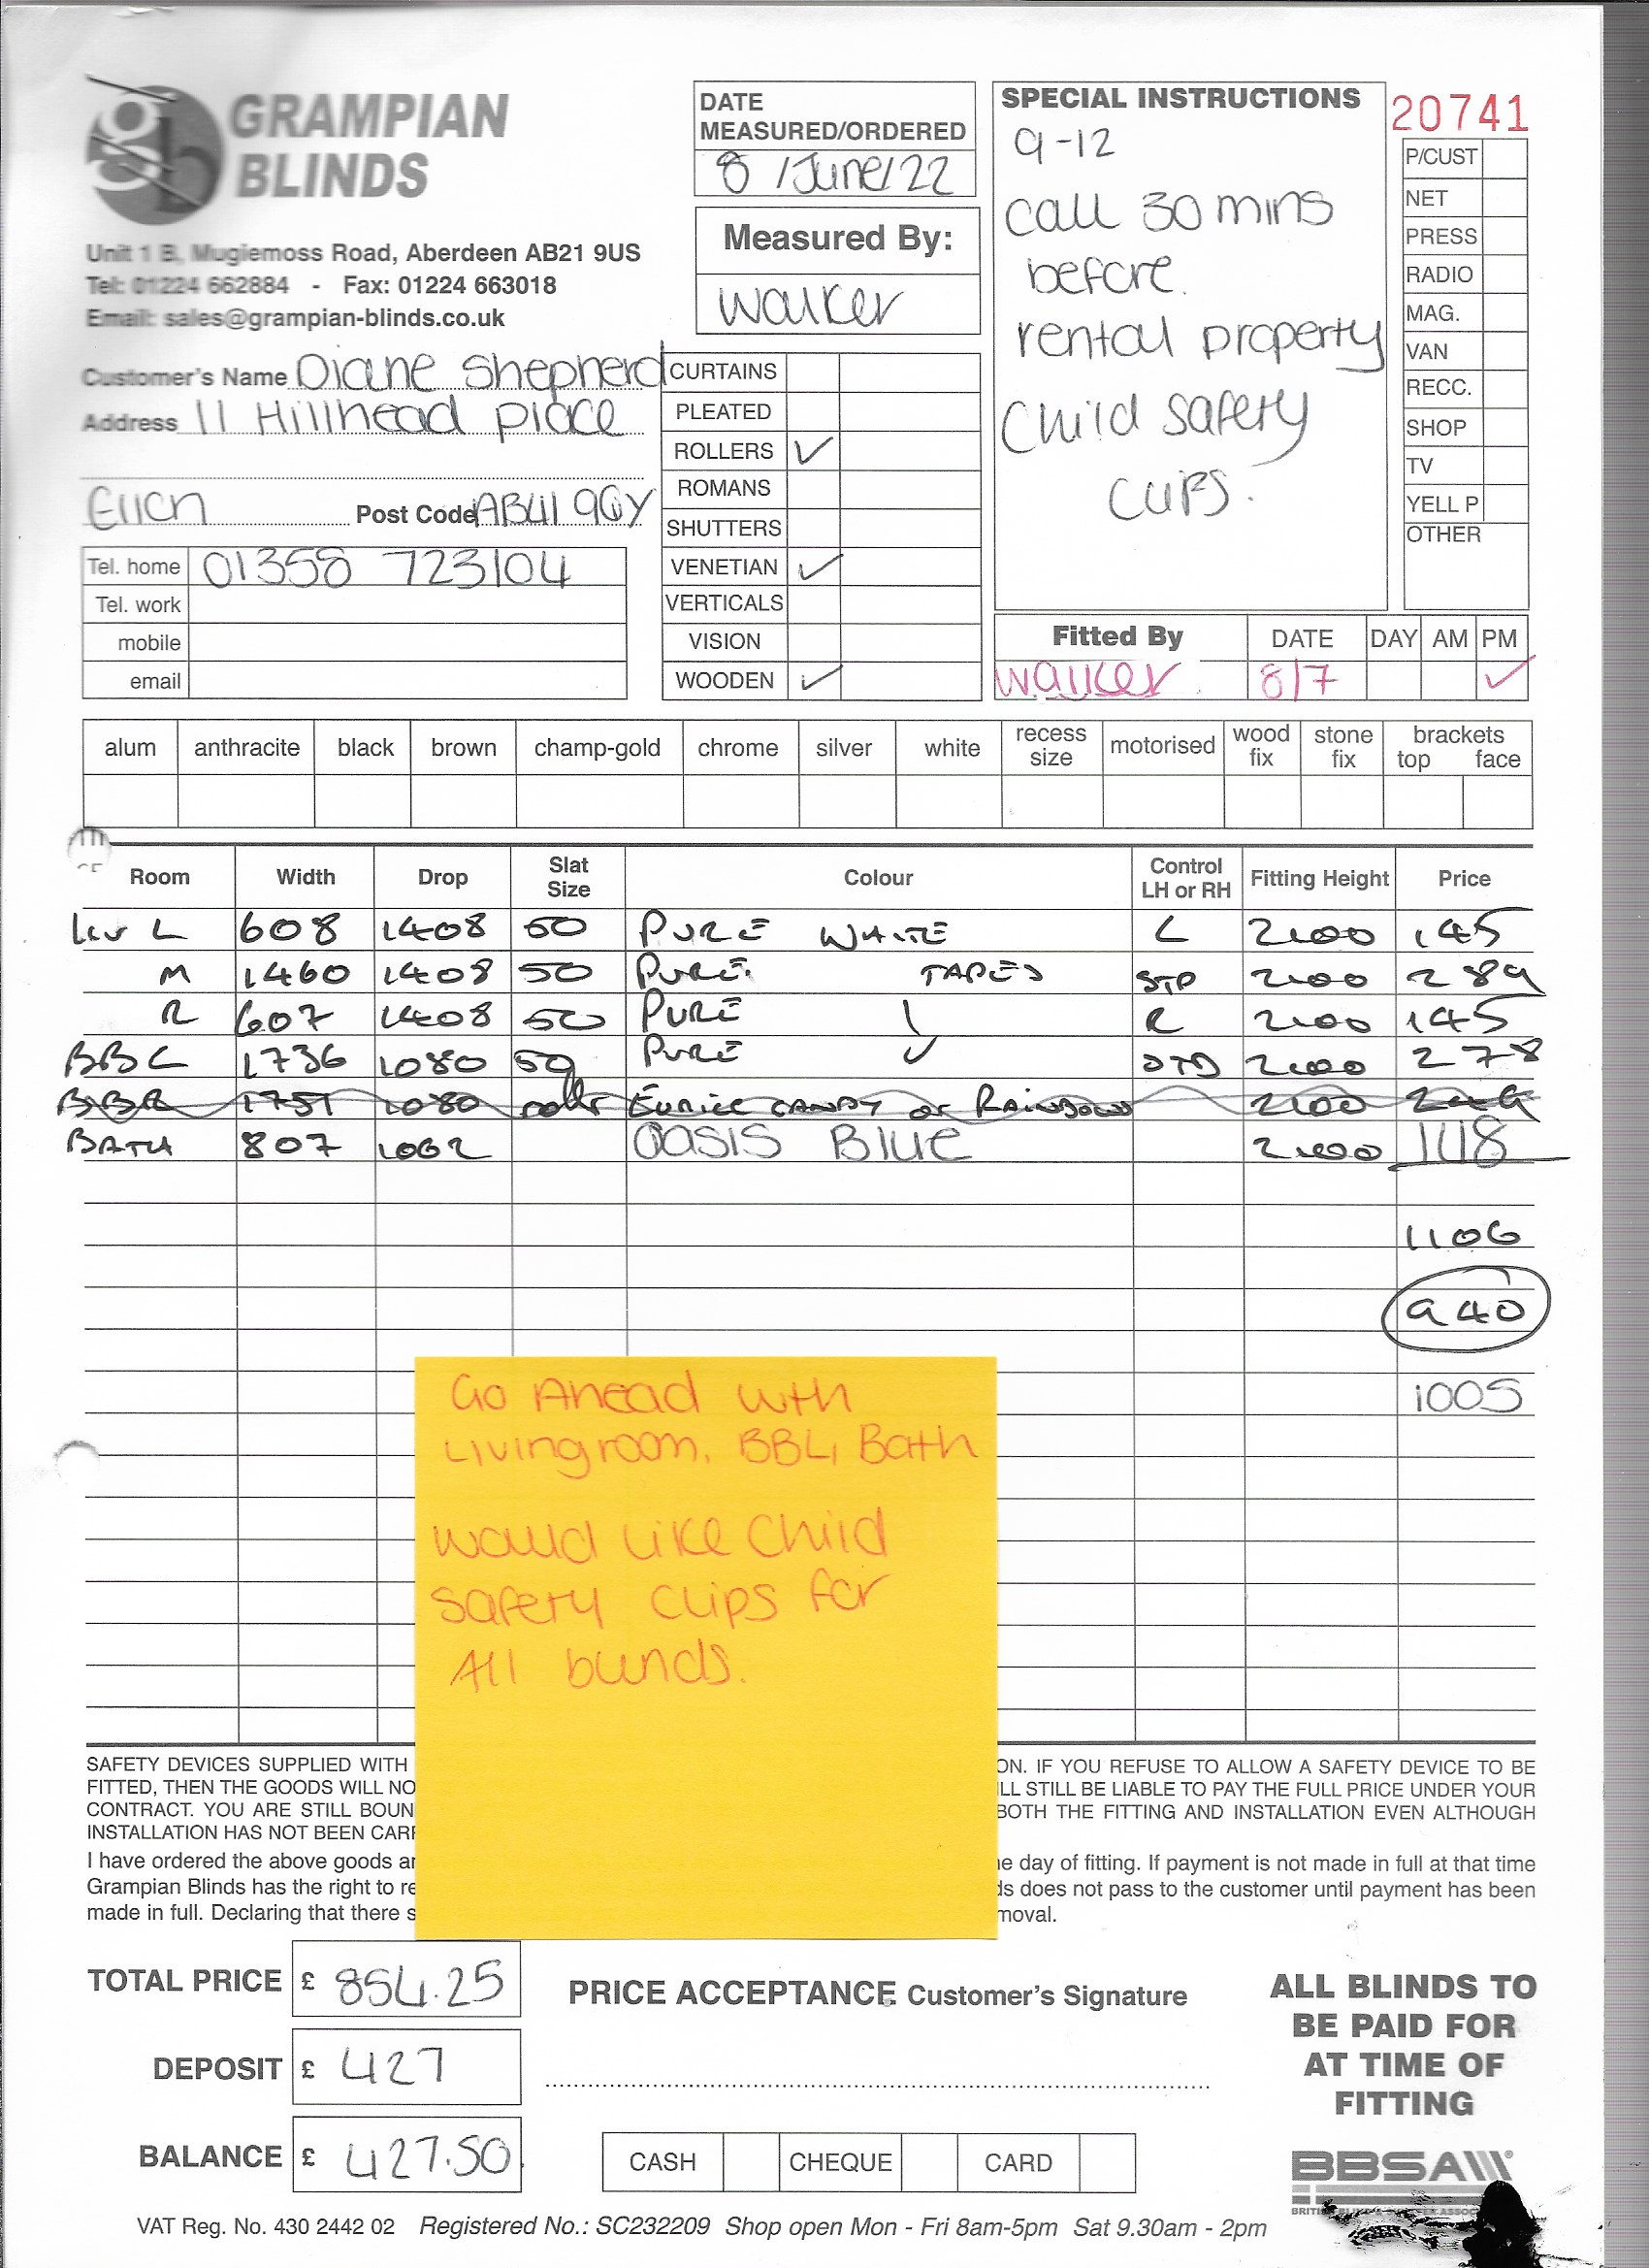 gb GRAMPIAN BLINDS
Unit 1 B, Mugiemoss Road, Aberdeen AB21 9US
Tel: 01224 662884 - Fax: 01224 663018
Email: sales@grampian-blinds.co.uk
DATE MEASURED/ORDERED
8 /June/22
Measured By:
Walker
SPECIAL INSTRUCTIONS
9-12
call 30 mins
before.
rental property
Child safety
clips.
20741
P/CUST
NET
PRESS
RADIO
MAG.
VAN
RECC.
SHOP
TV
YELL P
OTHER
Customer's Name Diane Shepherd
Address 11 Hillhead place
Ellon Post Code AB41 9GY
Tel. home 01358 723104
Tel. work
mobile
email
CURTAINS
PLEATED
ROLLERS ✓
ROMANS
SHUTTERS
VENETIAN ✓
VERTICALS
VISION
WOODEN ✓
Fitted By DATE DAY AM PM
Walker 8/7 ✓
alum anthracite black brown champ-gold chrome silver white recess size motorised wood fix stone fix brackets top face
Room Width Drop Slat Size Colour Control LH or RH Fitting Height Price
Liv L 608 1408 50 PURE WHITE L 2100 145
M 1460 1408 50 PURE TAPES STD 2100 289
R 607 1408 50 PURE R 2100 145
BBL 1736 1080 50 PURE ✓ STD 2100 278
BBR 1751 1080 roller CANDY or RAINBOW 2100 249
BATH 807 1062 OASIS Blue 2100 148
1106
940
1005
Go Ahead with
Livingroom, BBL, Bath
would like child
safety clips for
All blinds.
SAFETY DEVICES SUPPLIED WITH ON. IF YOU REFUSE TO ALLOW A SAFETY DEVICE TO BE
FITTED, THEN THE GOODS WILL NO LL STILL BE LIABLE TO PAY THE FULL PRICE UNDER YOUR
CONTRACT. YOU ARE STILL BOUN BOTH THE FITTING AND INSTALLATION EVEN ALTHOUGH
INSTALLATION HAS NOT BEEN CARR
I have ordered the above goods an e day of fitting. If payment is not made in full at that time
Grampian Blinds has the right to re ds does not pass to the customer until payment has been
made in full. Declaring that there s moval.
TOTAL PRICE £ 854.25
DEPOSIT £ 427
BALANCE £ 427.50
PRICE ACCEPTANCE Customer's Signature
CASH CHEQUE CARD
ALL BLINDS TO
BE PAID FOR
AT TIME OF
FITTING
BBSA
VAT Reg. No. 430 2442 02 Registered No.: SC232209 Shop open Mon - Fri 8am-5pm Sat 9.30am - 2pm